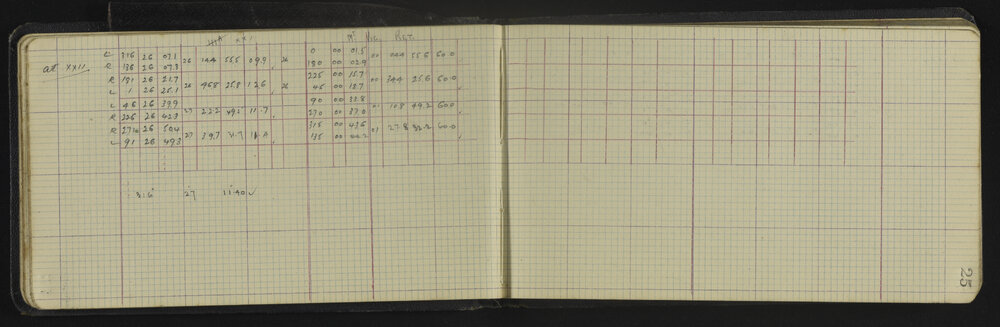 XXI Mt Mc. Ref.
at XXII L 316 26 07.1 0 00 01.5
R 136 26 07.3 26 14.4 55.5 09.9 180 00 02.9 00 04.4 55.6 60.0
R 181 26 21.7 225 00 15.7
L 1 26 25.1 26 46.8 25.8 12.6 45 00 18.7 00 34.4 25.6 60.0
L 46 26 39.9 90 00 33.8
R 226 26 42.3 27 22.2 49.5 11.7 270 00 37.0 01 10.8 49.2 60.0
R 271 26 50.4 315 00 43.6
L 91 26 49.3 27 39.7 135 00 01 27.8 32.2 60.0
316 27 11.40
25